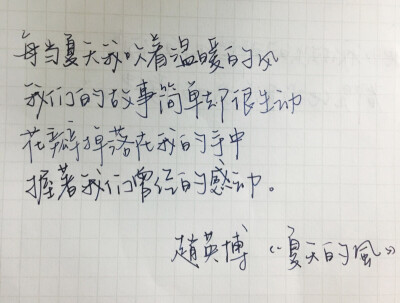 每当夏天我吹着温暖的风
我们的故事简单却很生动
花瓣掉落在我的手中
握著我们曾经的感动。
趙英博《夏天的風》